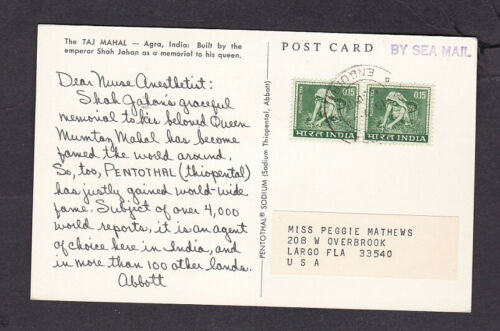 The TAJ MAHAL — Agra, India: Built by the
emperor Shah Jahan as a memorial to his queen.
POST CARD
BY SEA MAIL
Dear Nurse Anesthetist:
Shah Jahan's graceful
memorial to his beloved Queen
Mumtaz Mahal has become
famed the world around.
So, too, PENTOTHAL (thiopental)
has justly gained world-wide
fame. Subject of over 4,000
world reports, it is an agent
of choice here in India, and
in more than 100 other lands.
Abbott
PENTOTHAL® SODIUM (Sodium Thiopental, Abbott)
0.15
भारत INDIA
0.15
भारत INDIA
MISS PEGGIE MATHEWS
208 W OVERBROOK
LARGO FLA 33540
U S A